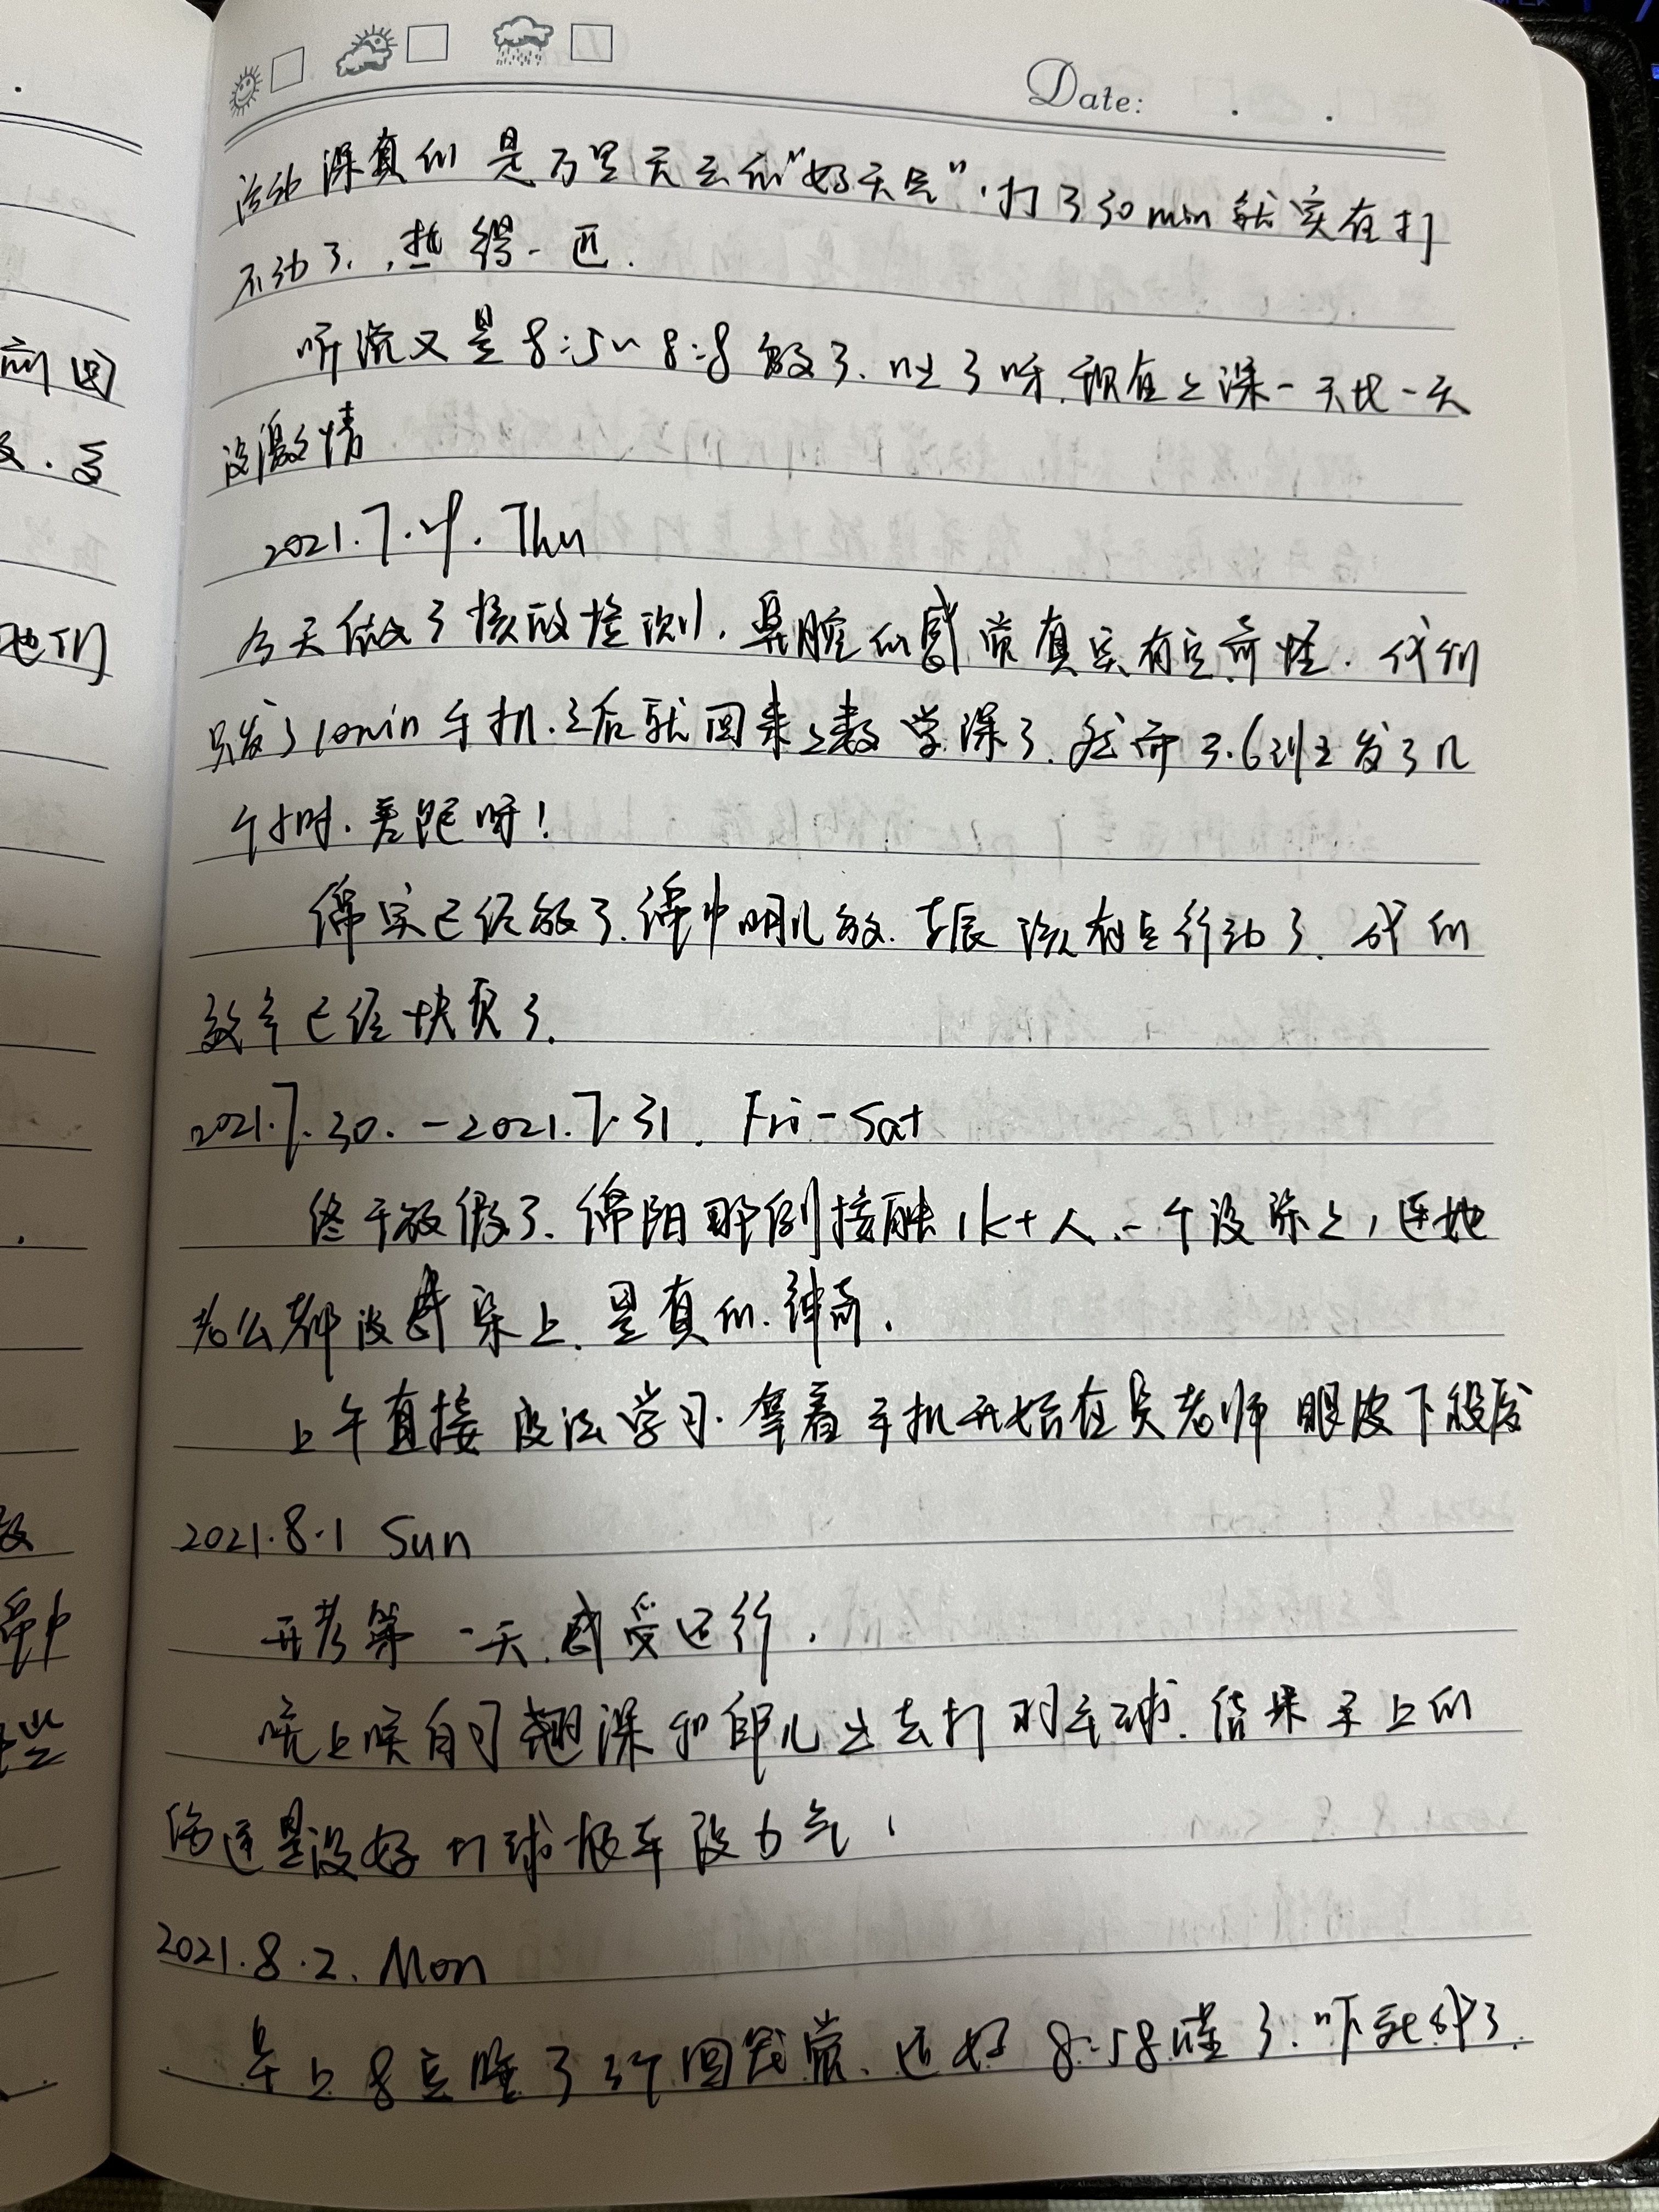 Date:
活动课真的是万里无云的“好天气”，打了30min就实在打
不动了，热得一匹.
听说又是8:5~8:8放了.吐了呀.现在上课一天比一天
没激情
2021.7.29. Thu
今天做了核酸检测，鼻腔的感觉真实有点奇怪.我们
只发了10min手机.之后就回来上数学课了.然而3.6班发了几
个小时.差距呀！
绵实已经放了.绵中明儿放.东辰该有点行动了.我们
效率已经快负了.
2021.7.30.-2021.7.31. Fri-Sat
终于放假了.绵阳那例接触1k+人.一个没染上，连她
老公都没感染上.是真的.神奇.
上午直接没法学习.拿着手机开始在吴老师眼皮下
2021.8.1 Sun
开考第一天.感受还行.
晚上晚自习翘课和印儿出去打羽毛球.结果手上的
伤还是没好打球根本没力气，
2021.8.2. Mon
早上8点睡了个回笼觉.还好8:58醒了.吓死我了.
前回
及.多
他们
放
绵中
些